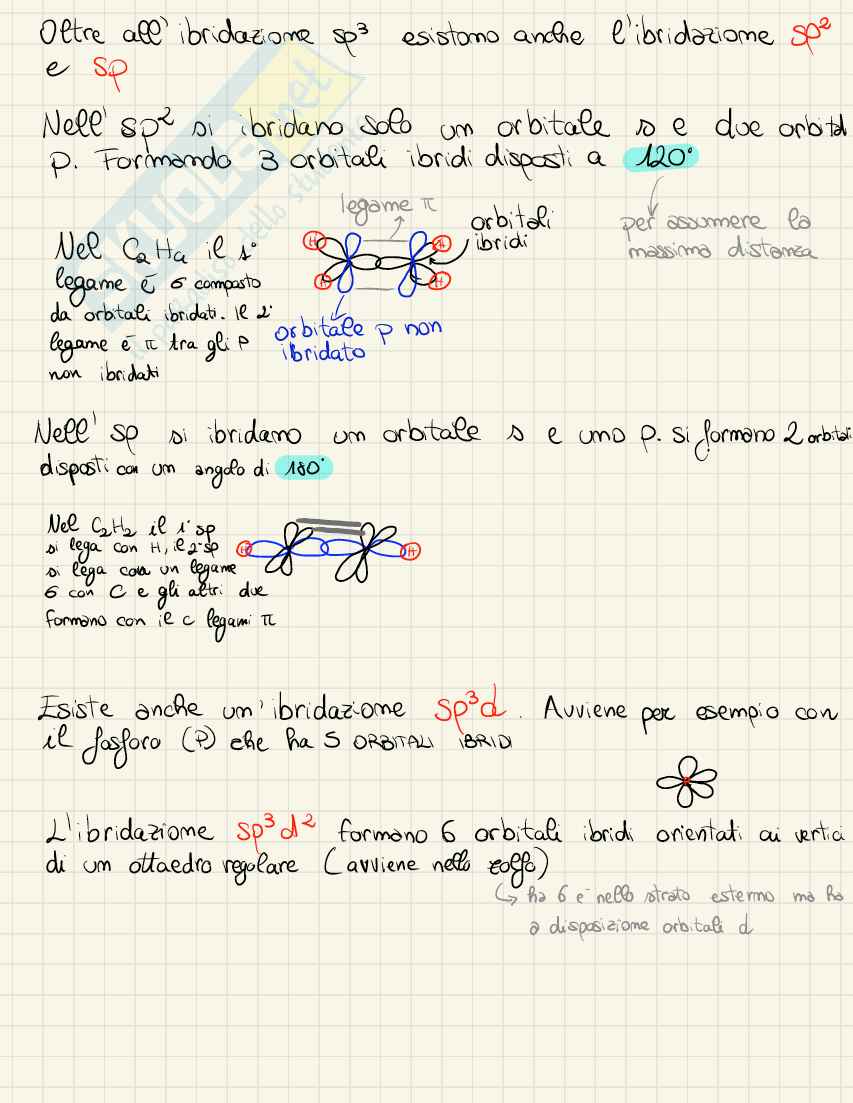 Oltre all'ibridazione sp³ esistono anche l'ibridazione sp²
e sp
Nell'sp² si ibridano solo un orbitale s e due orbital
p. Formando 3 orbitali ibridi disposti a 120°
per assumere la
massima distanza
legame π
orbitali
ibridi
H
H
H
H
Nel C₂H₄ il 1°
legame è σ composto
da orbitali ibridati. Il 2°
legame è π tra gli p
non ibridati
orbitale p non
ibridato
Nell'sp si ibridano un orbitale s e uno p. Si formano 2 orbitali
disposti con un angolo di 180°
Nel C₂H₂ il 1° sp
si lega con H, il 2° sp
si lega con un legame
σ con C e gli altri due
formano con il C legami π
H
H
Esiste anche un'ibridazione sp³d. Avviene per esempio con
il fosforo (P) che ha 5 ORBITALI IBRIDI
L'ibridazione sp³d² formano 6 orbitali ibridi orientati ai vertici
di un ottaedro regolare (avviene nello zolfo)
↳ ha 6 e⁻ nello strato esterno ma ha
a disposizione orbitali d
SKUOLA.net
il paradiso dello studente